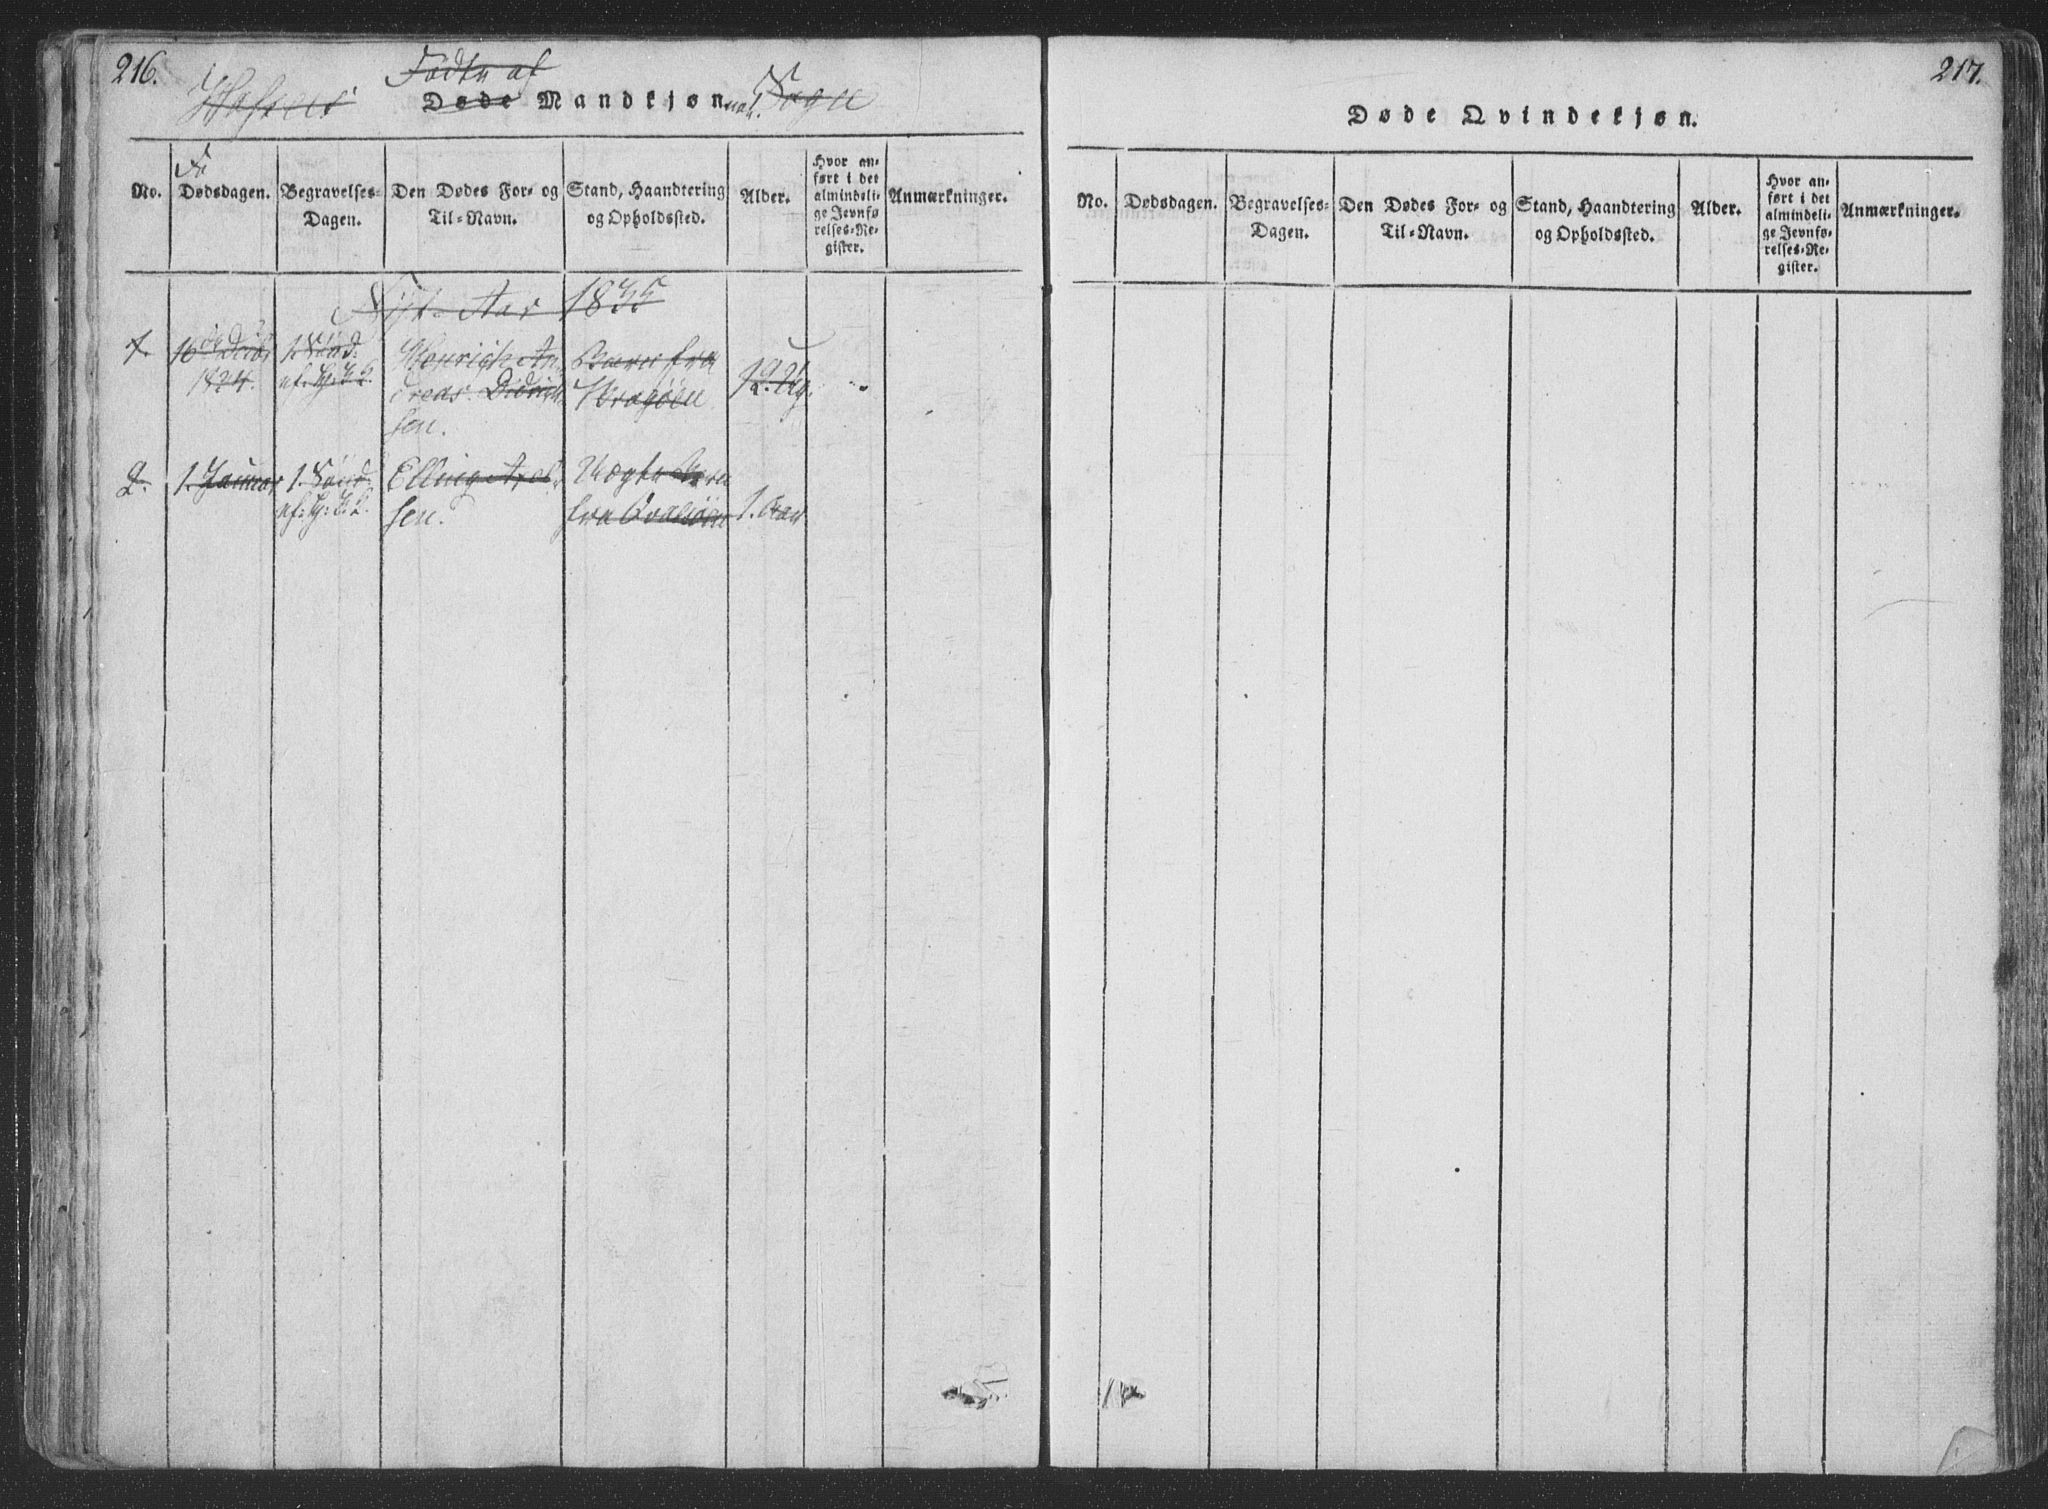 216.
Födte af
Døde Mandkjøn Sogn
No.
Dødsdagen.
Begravelses-
Dagen.
Den Dødes For- og
Til-Navn.
Stand, Haandtering
og Opholdssted.
Alder.
Hvor an-
ført i det
almindeli-
ge Jevnfø
relses-Re-
gister.
Anmærkninger.
Nyt-Aar 1835
1. 16 1. Sönd. Henrich An
1824. ef: H: 3 K. dreas Didrich
sen.
Barn fra
2. 1. Januar 1. Sönd. Elling
sen.
fra
1. Aar
217.
Døde Qvindekjøn.
No.
Dødsdagen.
Begravelses-
Dagen.
Den Dødes For- og
Til-Navn.
Stand, Haandtering
og Opholdssted.
Alder.
Hvor an-
ført i det
almindeli-
ge Jevnfø-
relses-Re-
gister.
Anmærkninger.